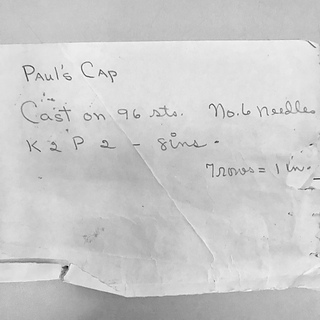 Paul's Cap
Cast on 96 sts. No. 6 needles
K 2 P 2 - 8 ins.
7 rows = 1 in.